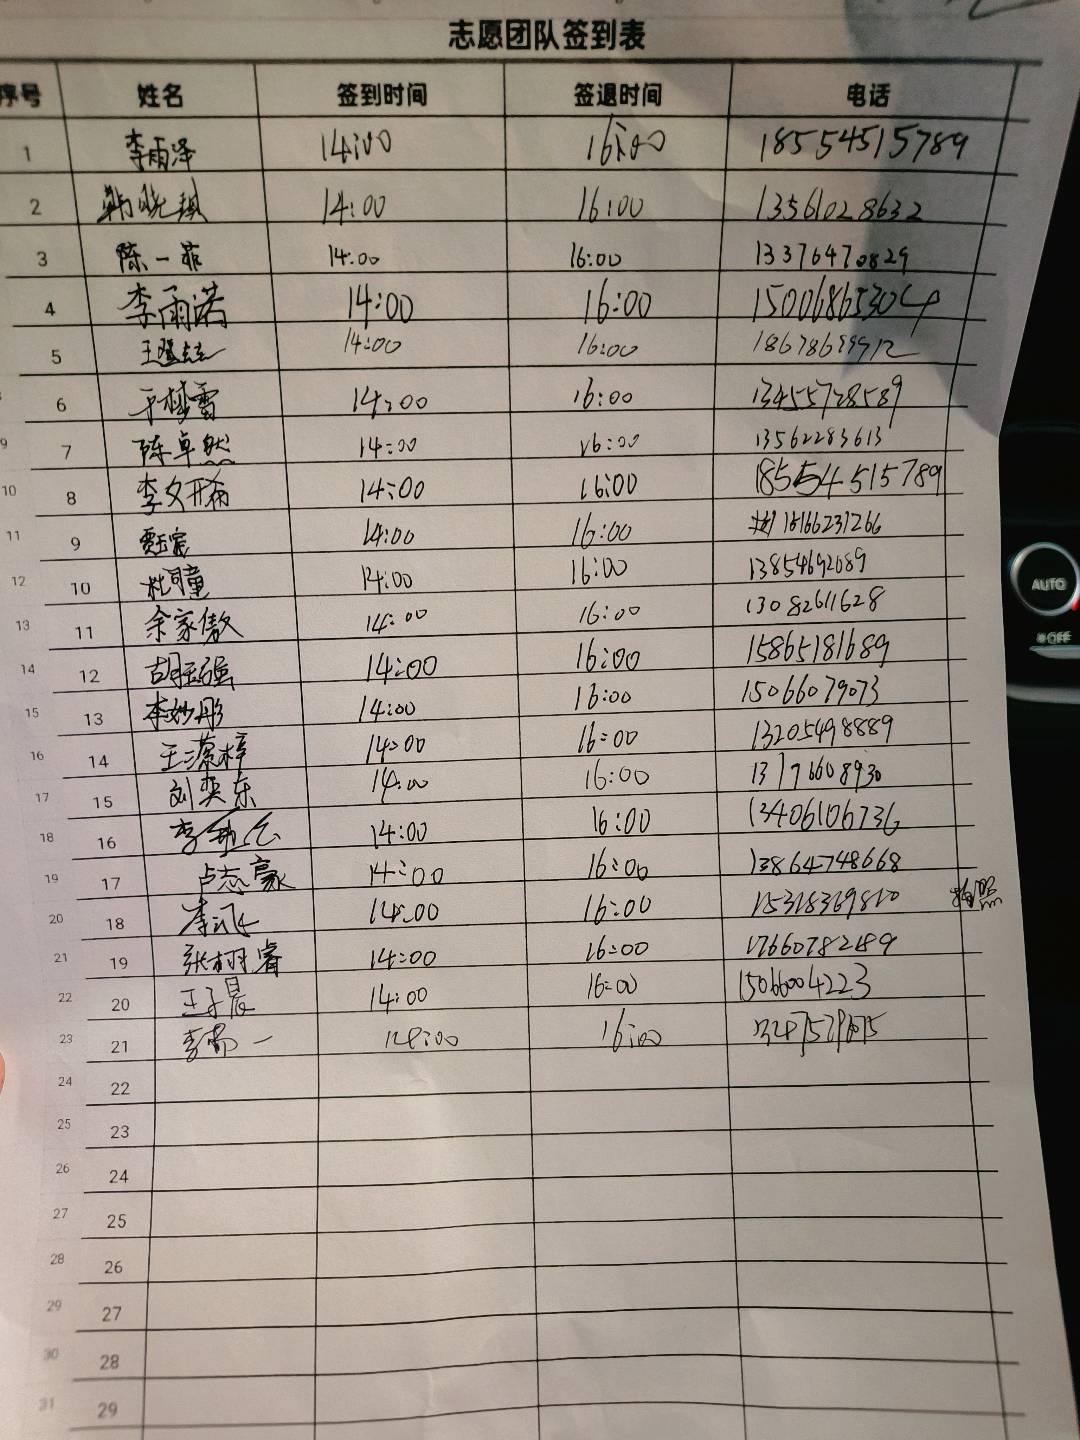 志愿团队签到表
序号 姓名 签到时间 签退时间 电话
1 李雨泽 14:00 16:00 18554515789
2 韩晓琪 14:00 16:00 13561028632
3 陈一菲 14:00 16:00 13376470829
4 李雨诺 14:00 16:00 15006865304
5 14:00 16:00
6 于梦雪 14:00 16:00 13455728589
9 7 陈卓然 14:00 16:00 13562283613
10 8 李文开 14:00 16:00 18554515789
11 9 14:00 16:00 18166231266
12 10 杜雨童 14:00 16:00 13854692089
13 11 余家傲 14:00 16:00 13082611628
14 12 胡钰强 14:00 16:00 15865181689
15 13 李妙彤 14:00 16:00 15066079073
16 14 王潇梓 14:00 16:00 13205498889
17 15 刘奕东 14:00 16:00 13176608930
18 16 14:00 16:00 13406106736
19 17 卢志豪 14:00 16:00 13864748668
20 18 14:00 16:00 15318369810 拍照
21 19 张栩睿 14:00 16:00 17660782189
22 20 王子晨 14:00 16:00 15066004223
23 21 14:00 16:00
24 22
25 23
26 24
27 25
28 26
29 27
30 28
31 29
AUTO
OFF